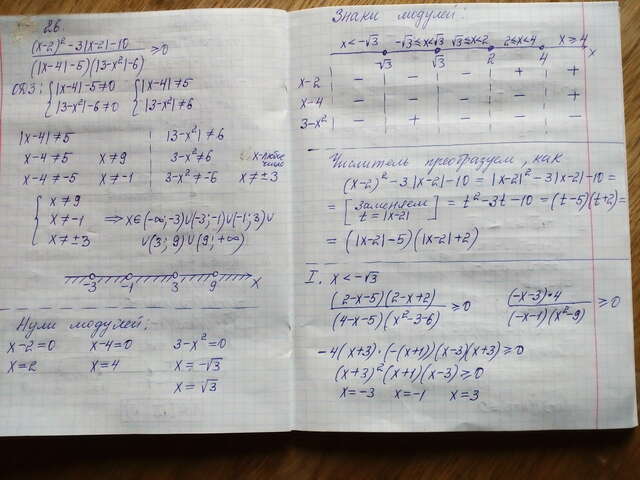 26
(x-2)² - 3|x-2| - 10
(|x-4|-5)(|3-x²|-6) ≥0
ОДЗ: { |x-4|-5≠0 { |x-4|≠5
|3-x²|-6≠0 |3-x²|≠6
|x-4|≠5 |3-x²|≠6
x-4≠5 x≠9 3-x²≠6 x-любое число
x-4≠-5 x≠-1 3-x²≠-6 x≠±3
{ x≠9
x≠-1 ⇒ x∈(-∞;-3)∪(-3;-1)∪(-1;3)∪
x≠±3 ∪(3;9)∪(9;+∞)
-3 -1 3 9 x
Нули модулей:
x-2=0 x-4=0 3-x²=0
x=2 x=4 x=-√3
x=√3
Знаки модулей:
x<-√3 -√3≤x<√3 √3≤x<2 2≤x<4 x≥4
√3 √3 2 4 x
x-2 - - - + +
x-4 - - - - +
3-x² - + - - -
Числитель преобразуем, как
(x-2)²-3|x-2|-10 = |x-2|²-3|x-2|-10 =
= [Заменяем t=|x-2|] = t²-3t-10 = (t-5)(t+2) =
= (|x-2|-5)(|x-2|+2)
I. x<-√3
(2-x-5)(2-x+2) ≥0 (-x-3)·4 ≥0
(4-x-5)(x²-3-6) (-x-1)(x²-9)
-4(x+3)·(-(x+1))(x-3)(x+3)≥0
(x+3)²(x+1)(x-3)≥0
x=-3 x=-1 x=3